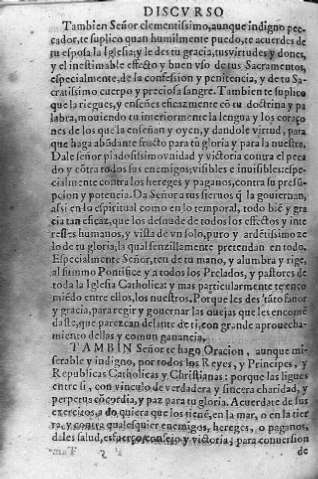 DISCVRSO
Tambien Señor clementissimo, aunque indigno pec-
cador, te suplico quan humilmente puedo, te acuerdes de
tu esposa la Iglesia; y le des tu gracia, tus virtudes y dones,
y el inestimable effecto y buen vso de tus Sacramentos,
especialmente, de la confession y penitencia, y de tu Sa-
cratissimo cuerpo y preciosa sangre. Tambien te suplico
que la riegues, y enseñes eficazmente cō tu doctrina y pa
labra, mouiendo tu interiormente la lengua y los coraço
nes de los que la enseñan y oyen, y dandole virtud, para
que haga abūdante fructo para tu gloria y para la nuestra.
Dale señor piadosissimo vnidad y victoria contra el peca
do y cōtra todos sus enemigos, visibles e inuisibles: espe
cialmente contra los hereges y paganos, contra su presu-
pcion y potencia. Da Señor a tus sieruos q̃ la gouiernan,
assi en lo espiritual como en lo temporal, todo biē y gra
cia tan eficaz, que los desnude de todos los effectos y inte
resses humanos, y vista de vn solo, puro y ardētissimo ze
lo de tu gloria; la qual senzillamente pretendan en todo.
Especialmente Señor, ten de tu mano, y alumbra y rige,
al summo Pontifice y a todos los Prelados, y pastores de
toda la Iglesia Catholica: y mas particularmente te enco
miēdo entre ellos, los nuestros. Porque les des tāto fauor
y gracia, para regir y gouernar las ouejas que les encomē
daste, que parezcan delante de ti, con grande aprouecha-
miento dellas y comun ganancia.
TAMBIN Señor te hago Oracion, aunque mi-
serable y indigno, por todos los Reyes, y Principes, y
Republicas Catholicas y Christianas: porque las ligues
entre si, con vinculo de verdadera y sincera charidad, y
perpetua cōcordia, y paz para tu gloria. Acuerdate de sus
exercitos, a do quiera que los tienē, en la mar, o en la tier
ra, y contra qualesquier enemigos, hereges, o paganos,
dales salud, esfuerço, consejo y victoria; para conuersion
de